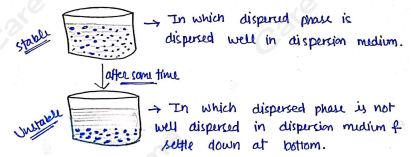 Stable
→ In which dispersed phase is
dispersed well in dispersion medium.
after some time
Unstable
→ In which dispersed phase is not
well dispersed in dispersion medium &
settle down at bottom.